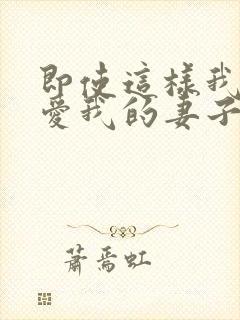 即使這樣我
愛我的妻子
蕭焉虹